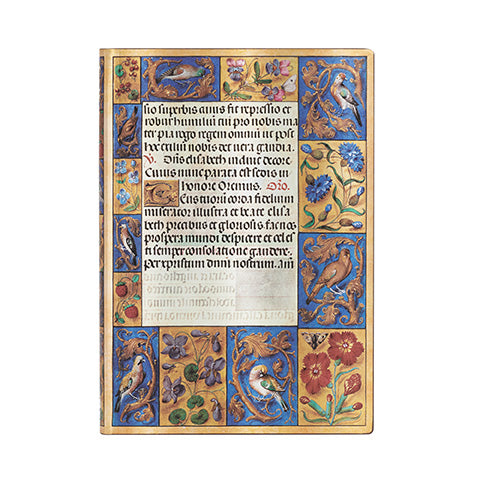 sio superbis cuius fit repressio et
robur humilium tui pro nobis ma
ter pia rogo regem omnium ut post
hoc exilium nobis det vera gaudia.
V. Dns elisabeth induit decore
Cuius nunc parata est sedis in
honore Oremus. Oro.
tuorum corda fidelium
miserator illustra et beate elisa
beth precibus et gloriosis fac nos
prospera mundi despicere et celes
ti semper consolatione gaudere.
Per xpistum dnm nostrum. Am